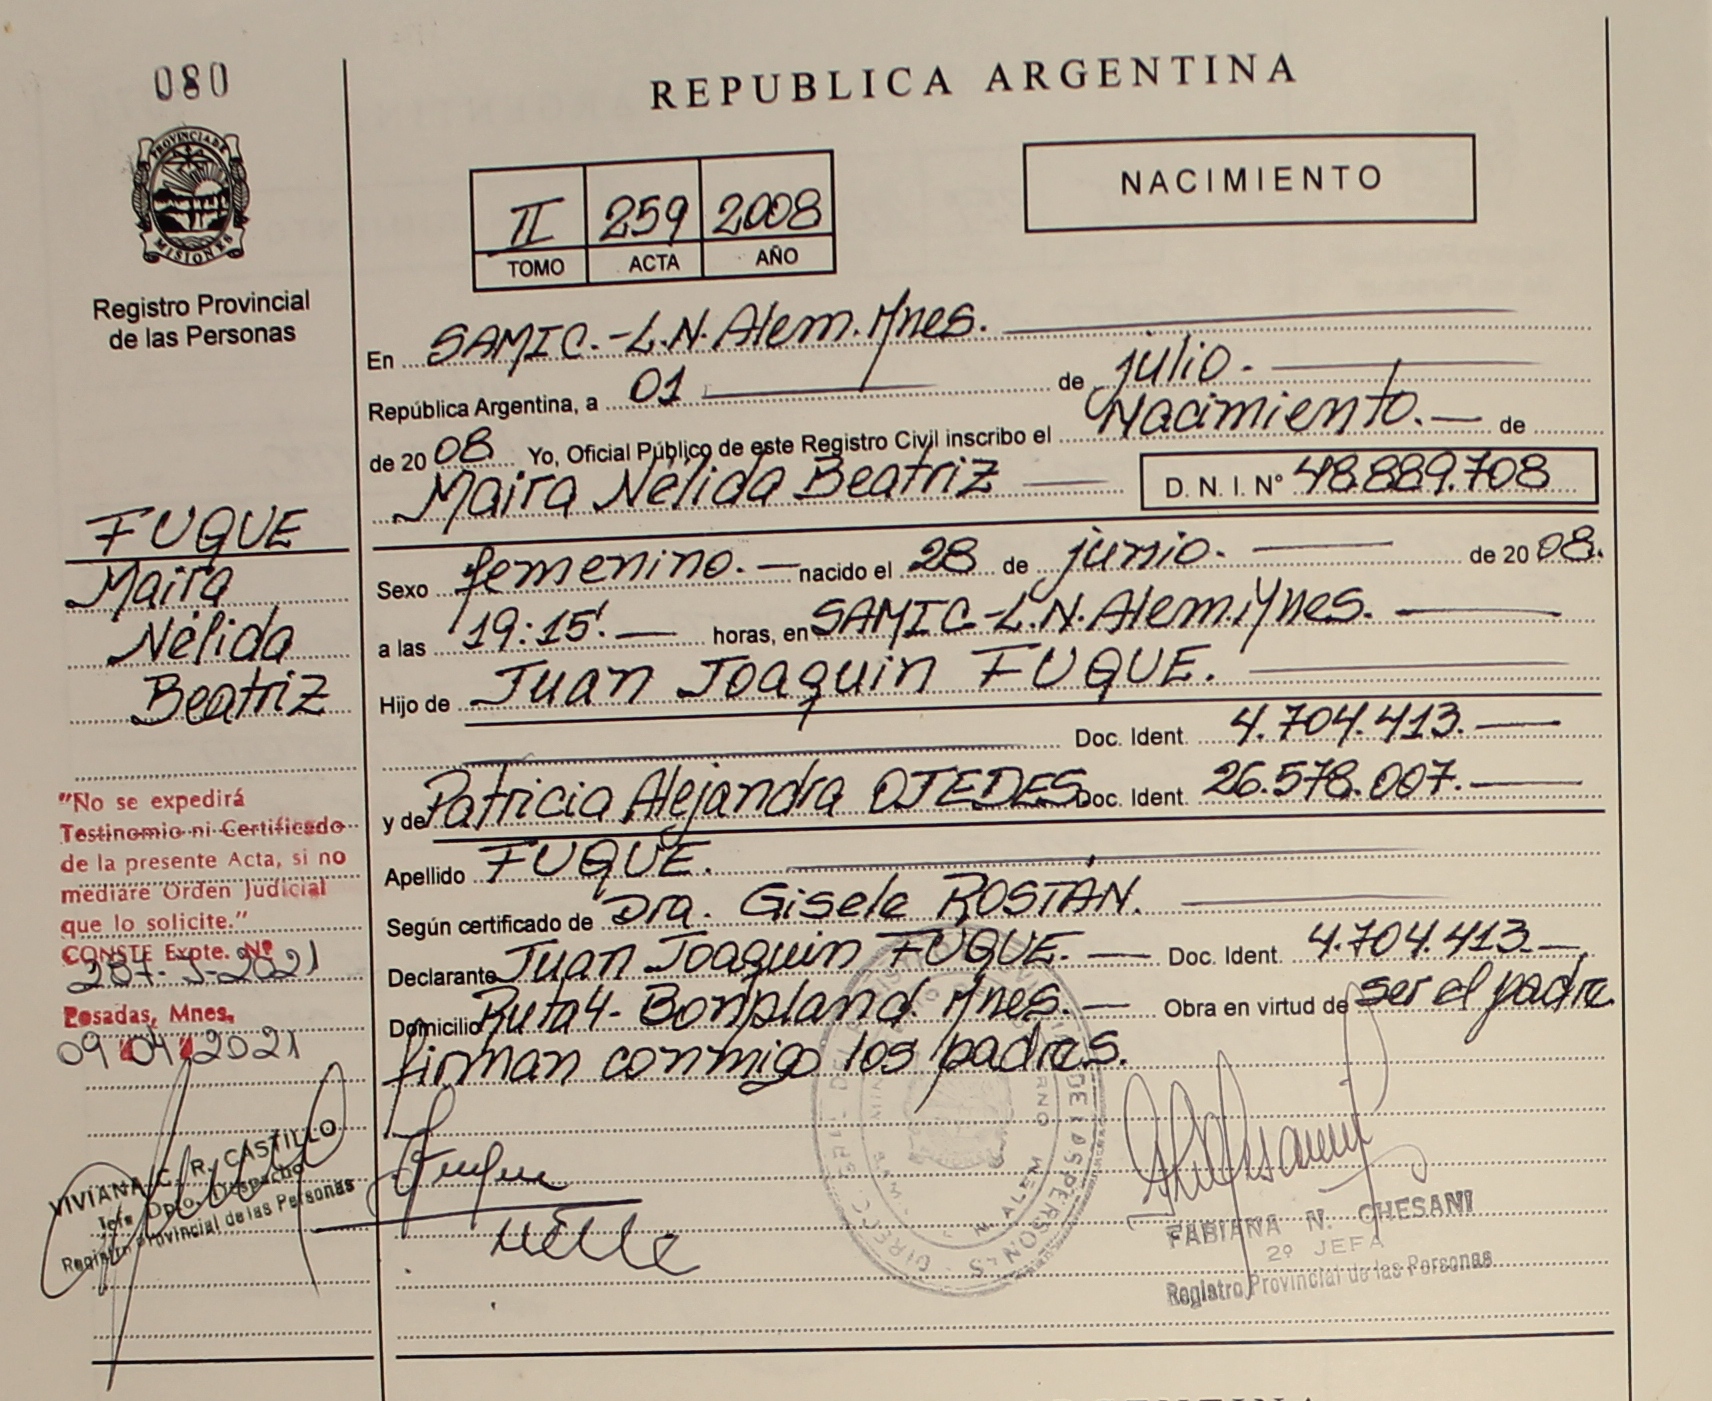 080
PROVINCIA DE
MISIONES
Registro Provincial
de las Personas
REPUBLICA ARGENTINA
II 259 2008
TOMO ACTA AÑO
NACIMIENTO
En SAMIC.-L.N.Alem.Mnes.
República Argentina, a 01 de julio.
de 2008 Yo, Oficial Público de este Registro Civil inscribo el Nacimiento. de
Maira Nélida Beatriz D. N. I. Nº 48.889.708
Sexo femenino. nacido el 28 de junio. de 2008.
a las 19:15'. horas, en SAMIC-L.N.Alem.Mnes.
Hijo de Juan Joaquin FUQUE.
Doc. Ident. 4.704.413.
y de Patricia Alejandra OJEDES Doc. Ident. 26.578.007.
Apellido FUQUE.
Según certificado de Dra. Gisele ROSTÁN.
Declarante Juan Joaquin FUQUE. Doc. Ident. 4.704.413.
Domicilio Ruta 4- Bonpland. Mnes. Obra en virtud de ser el padre
firman conmigo los padres.
FUQUE
Maira
Nélida
Beatriz
"No se expedirá
Testinomio ni Certificado
de la presente Acta, si no
mediare Orden Judicial
que lo solicite."
CONSTE Expte. Nº
Posadas, Mnes.
09 04 2021
VIVIANA C. R. CASTILLO
Jefa Dpto. Despacho
Registro Provincial de las Personas
Fuque
FABIANA N. CHESANI
2º JEFA
Registro Provincial de las Personas